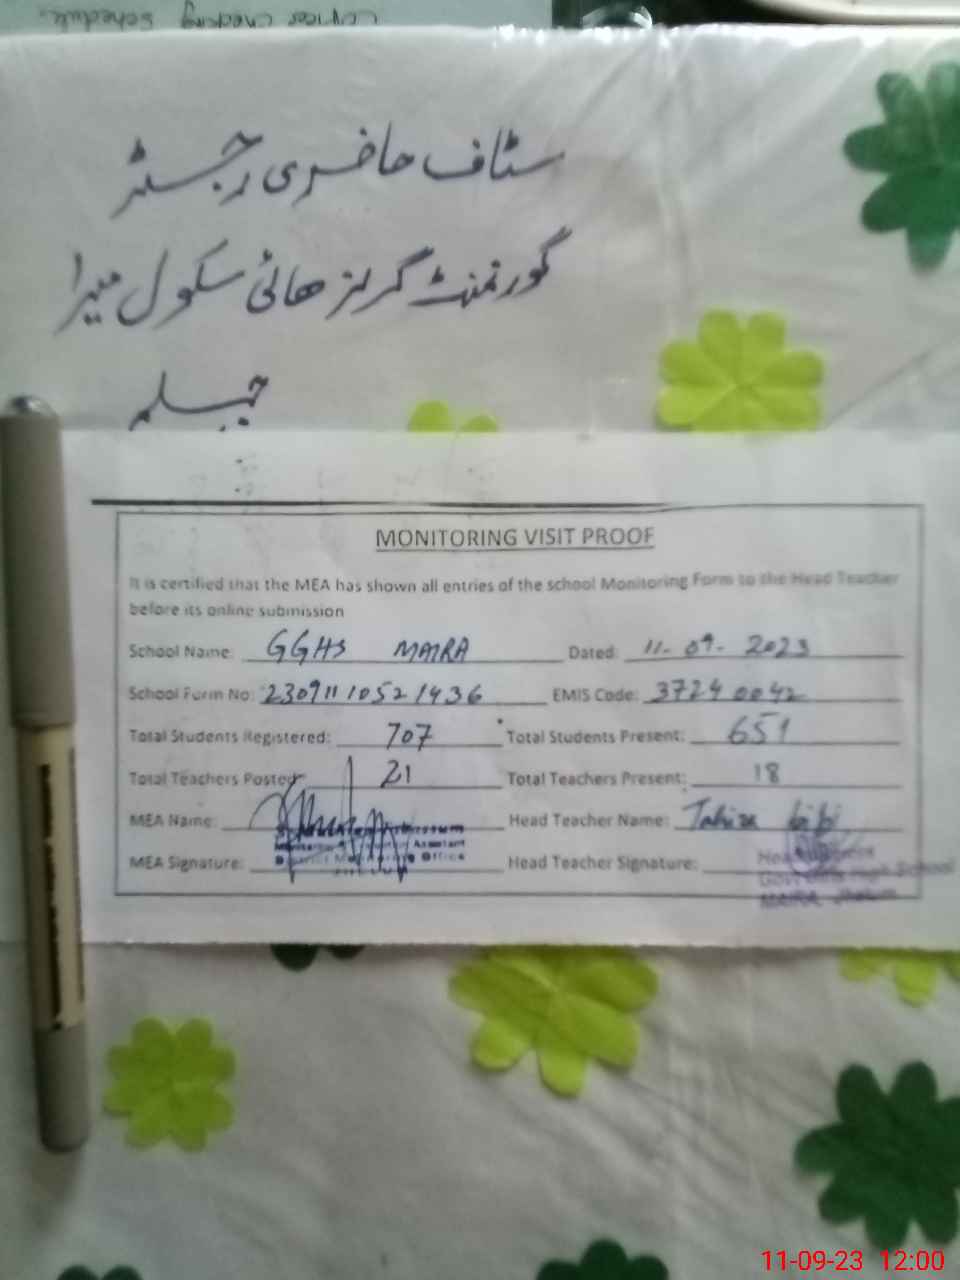 Copies checking schedule.
سٹاف حاضری رجسٹر
گورنمنٹ گرلز ھائی سکول میرا
جہلم
MONITORING VISIT PROOF
It is certified that the MEA has shown all entries of the school Monitoring Form to the Head Teacher
before its online submission
School Name: GGHS MAIRA Dated: 11-09-2023
School Form No: 23091110521436 EMIS Code: 37240042
Total Students Registered: 707 Total Students Present: 651
Total Teachers Posted: 21 Total Teachers Present: 18
MEA Name: Head Teacher Name: Tahira bibi
Monitoring Assistant
MEA Signature: District Monitoring Office Head Teacher Signature:
Govt Girls High School
MAIRA Jhelum
11-09-23 12:00